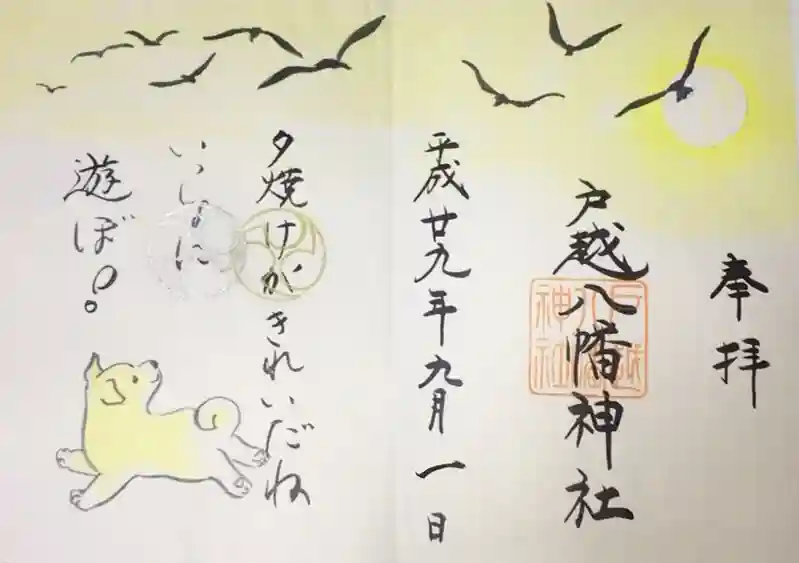 奉拝
戸越八幡神社
戸越
八幡
神社
平成廿九年九月一日
夕焼けがきれいだね
いっしょに
遊ぼ!。